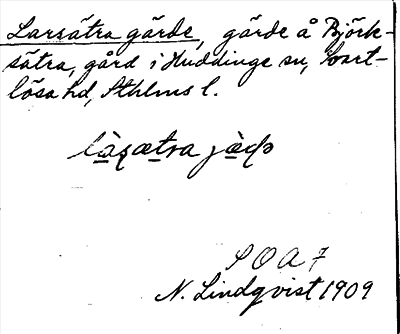 Larsätra gärde, gärde å Björk-
sätra, gård i Huddinge sn, Svart-
lösa hd, Sthlms l.
SOA 7
N. Lindqvist 1909